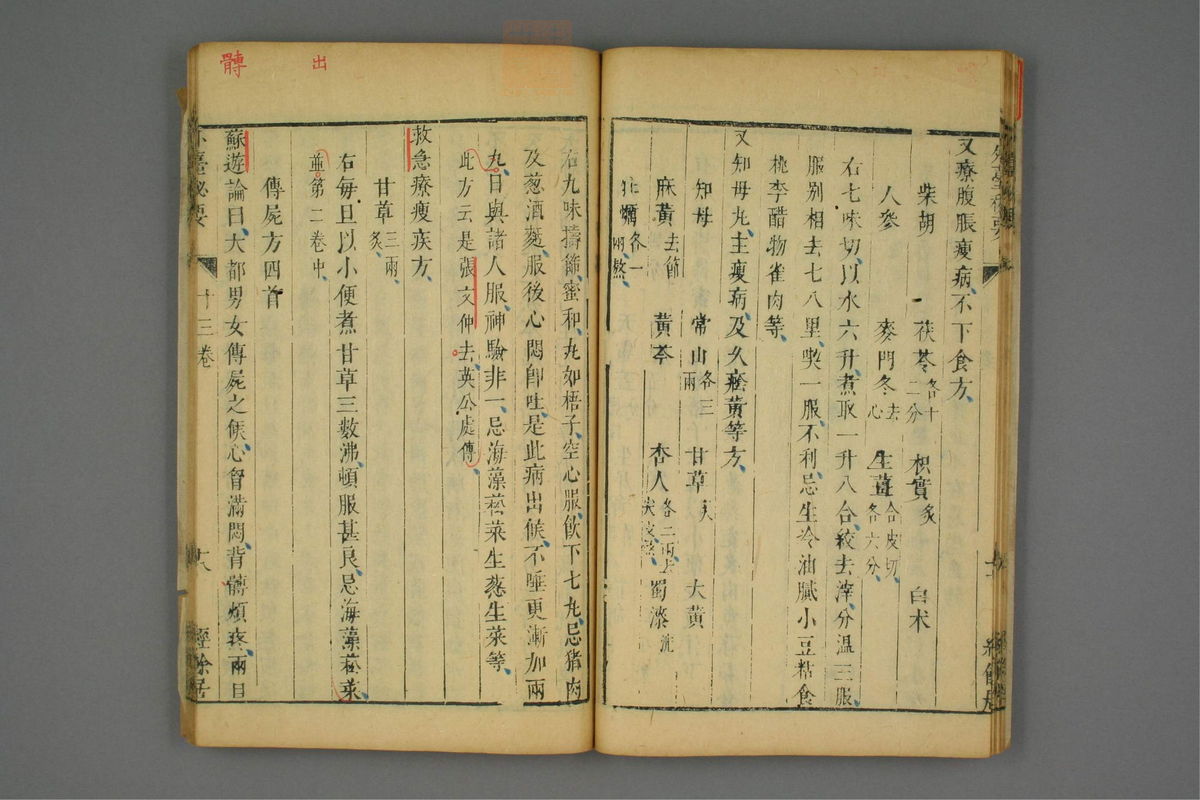 又療腹脹瘦病不下食方
柴胡 茯苓各十二分 枳實炙 白朮
人參 麥門冬去心 生薑合皮切各六分
右七味切以水六升煮取一升八合絞去滓分溫三服
服別相去七八里喫一服不利忌生冷油膩小豆粘食
桃李醋物雀肉等
又知母丸主瘦病及久瘧黃等方
知母 常山各三兩 甘草炙 大黃
麻黃去節 黃芩 杏人各二兩去 蜀漆洗
牡蠣各一兩熬
右九味擣篩蜜和丸如梧子空心服飲下七丸忌猪肉
及葱酒麵服後心悶卽吐是此病出候不唾更漸加兩
丸日與諸人服神驗非一忌海藻菘菜生葱生菜等
此方云是張文仲去英公處傳
救急療瘦疾方
甘草三兩炙
右每旦以小便煮甘草三數沸頓服甚良忌海藻菘菜
並第二卷中
傳屍方四首
蘇遊論曰大都男女傳屍之候心胷滿悶背髆煩疼兩目
外臺秘要 十三卷 十八 經餘居
出
髆